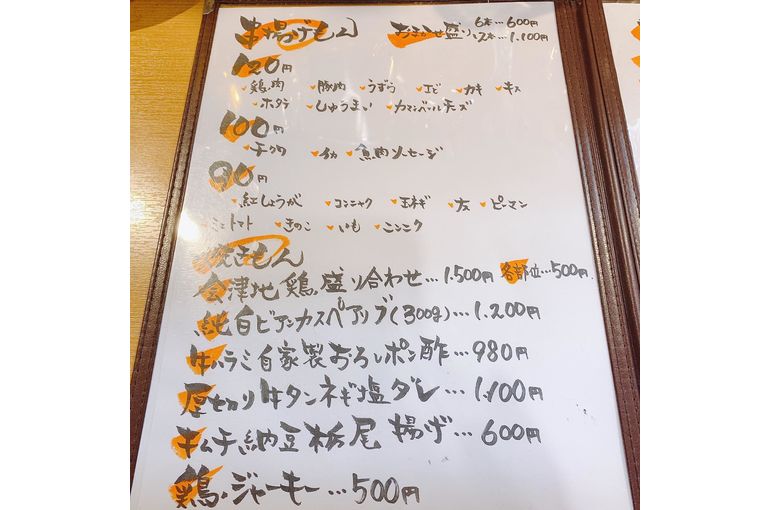 串揚げもん おまかせ盛り 6本…600円
12本…1,100円
120円
鶏肉 豚肉 うずら エビ カキ キス
ホタテ しゅうまい カマンベールチーズ
100円
チクワ イカ 魚肉ソーセージ
90円
紅しょうが コンニャク 玉ネギ ピーマン
ミニトマト きのこ いも ニンニク
焼きもん
会津地鶏盛り合わせ…1,500円 各部位…500円
純白ビアンカスペアリブ(300g)…1,200円
牛ハラミ自家製おろしポン酢…980円
厚切り牛タンネギ塩ダレ…1,100円
キムチ納豆栃尾揚げ…600円
鶏ジャーキー…500円